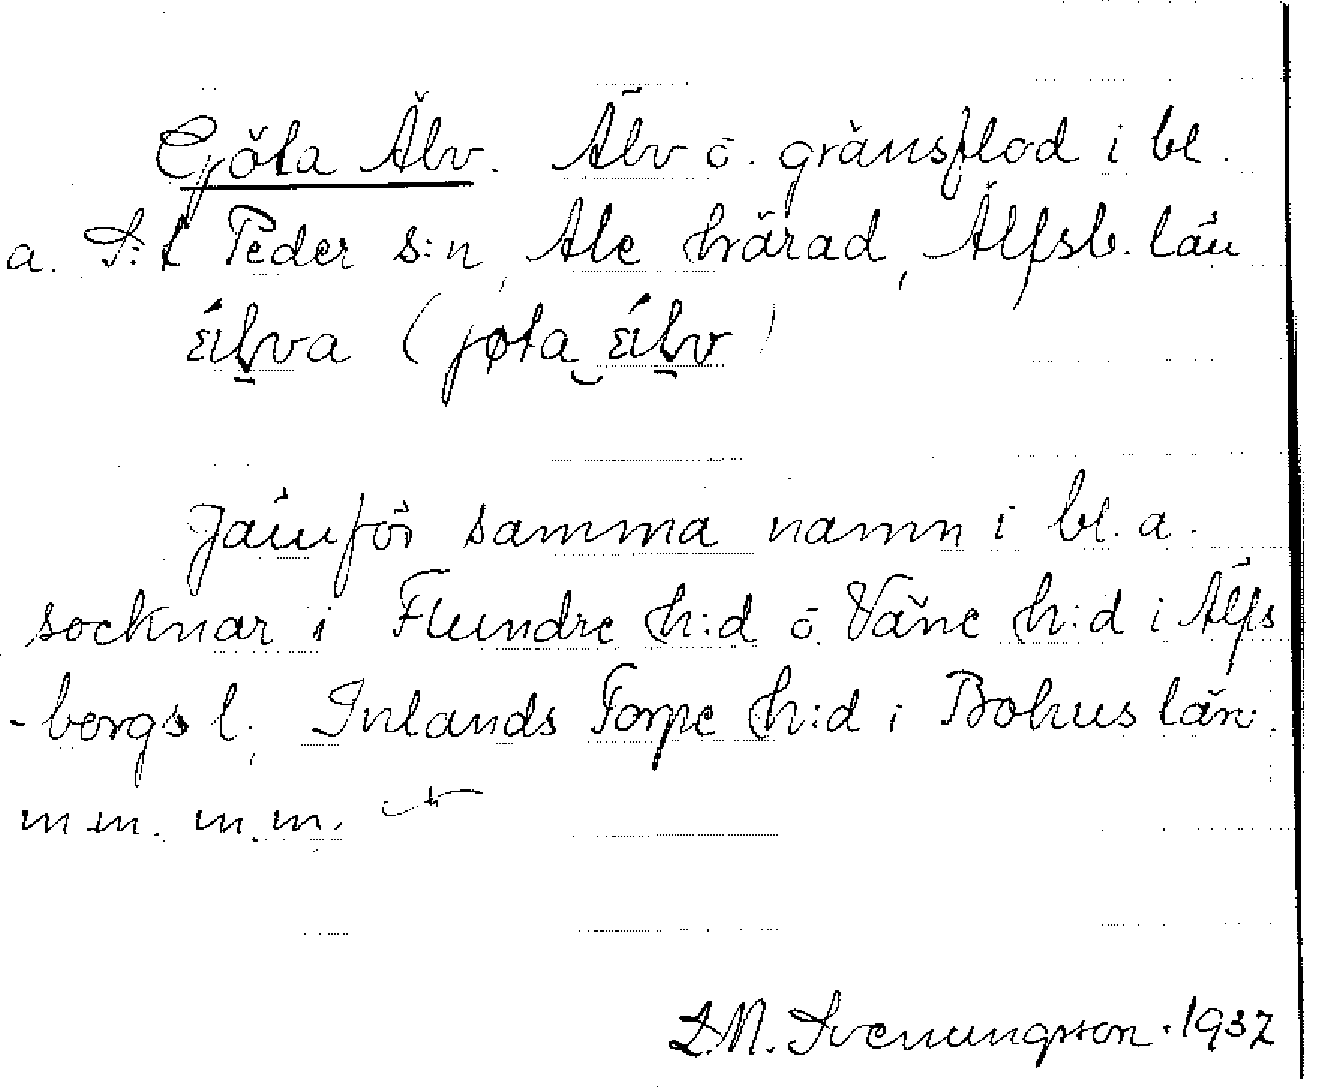 Göta Älv. Älv o. gränsflod i bl.
a. S:t Peder s:n, Ale härad, Älfsb. län
éilva (jøta éilv)
Jämför samma namn i bl. a.
socknar i Flundre h:d o. Väne h:d i Älfs
-borgs l., Inlands Torpe h:d i Bohus län.
m.m. m.m.
Svenungsson. 1937